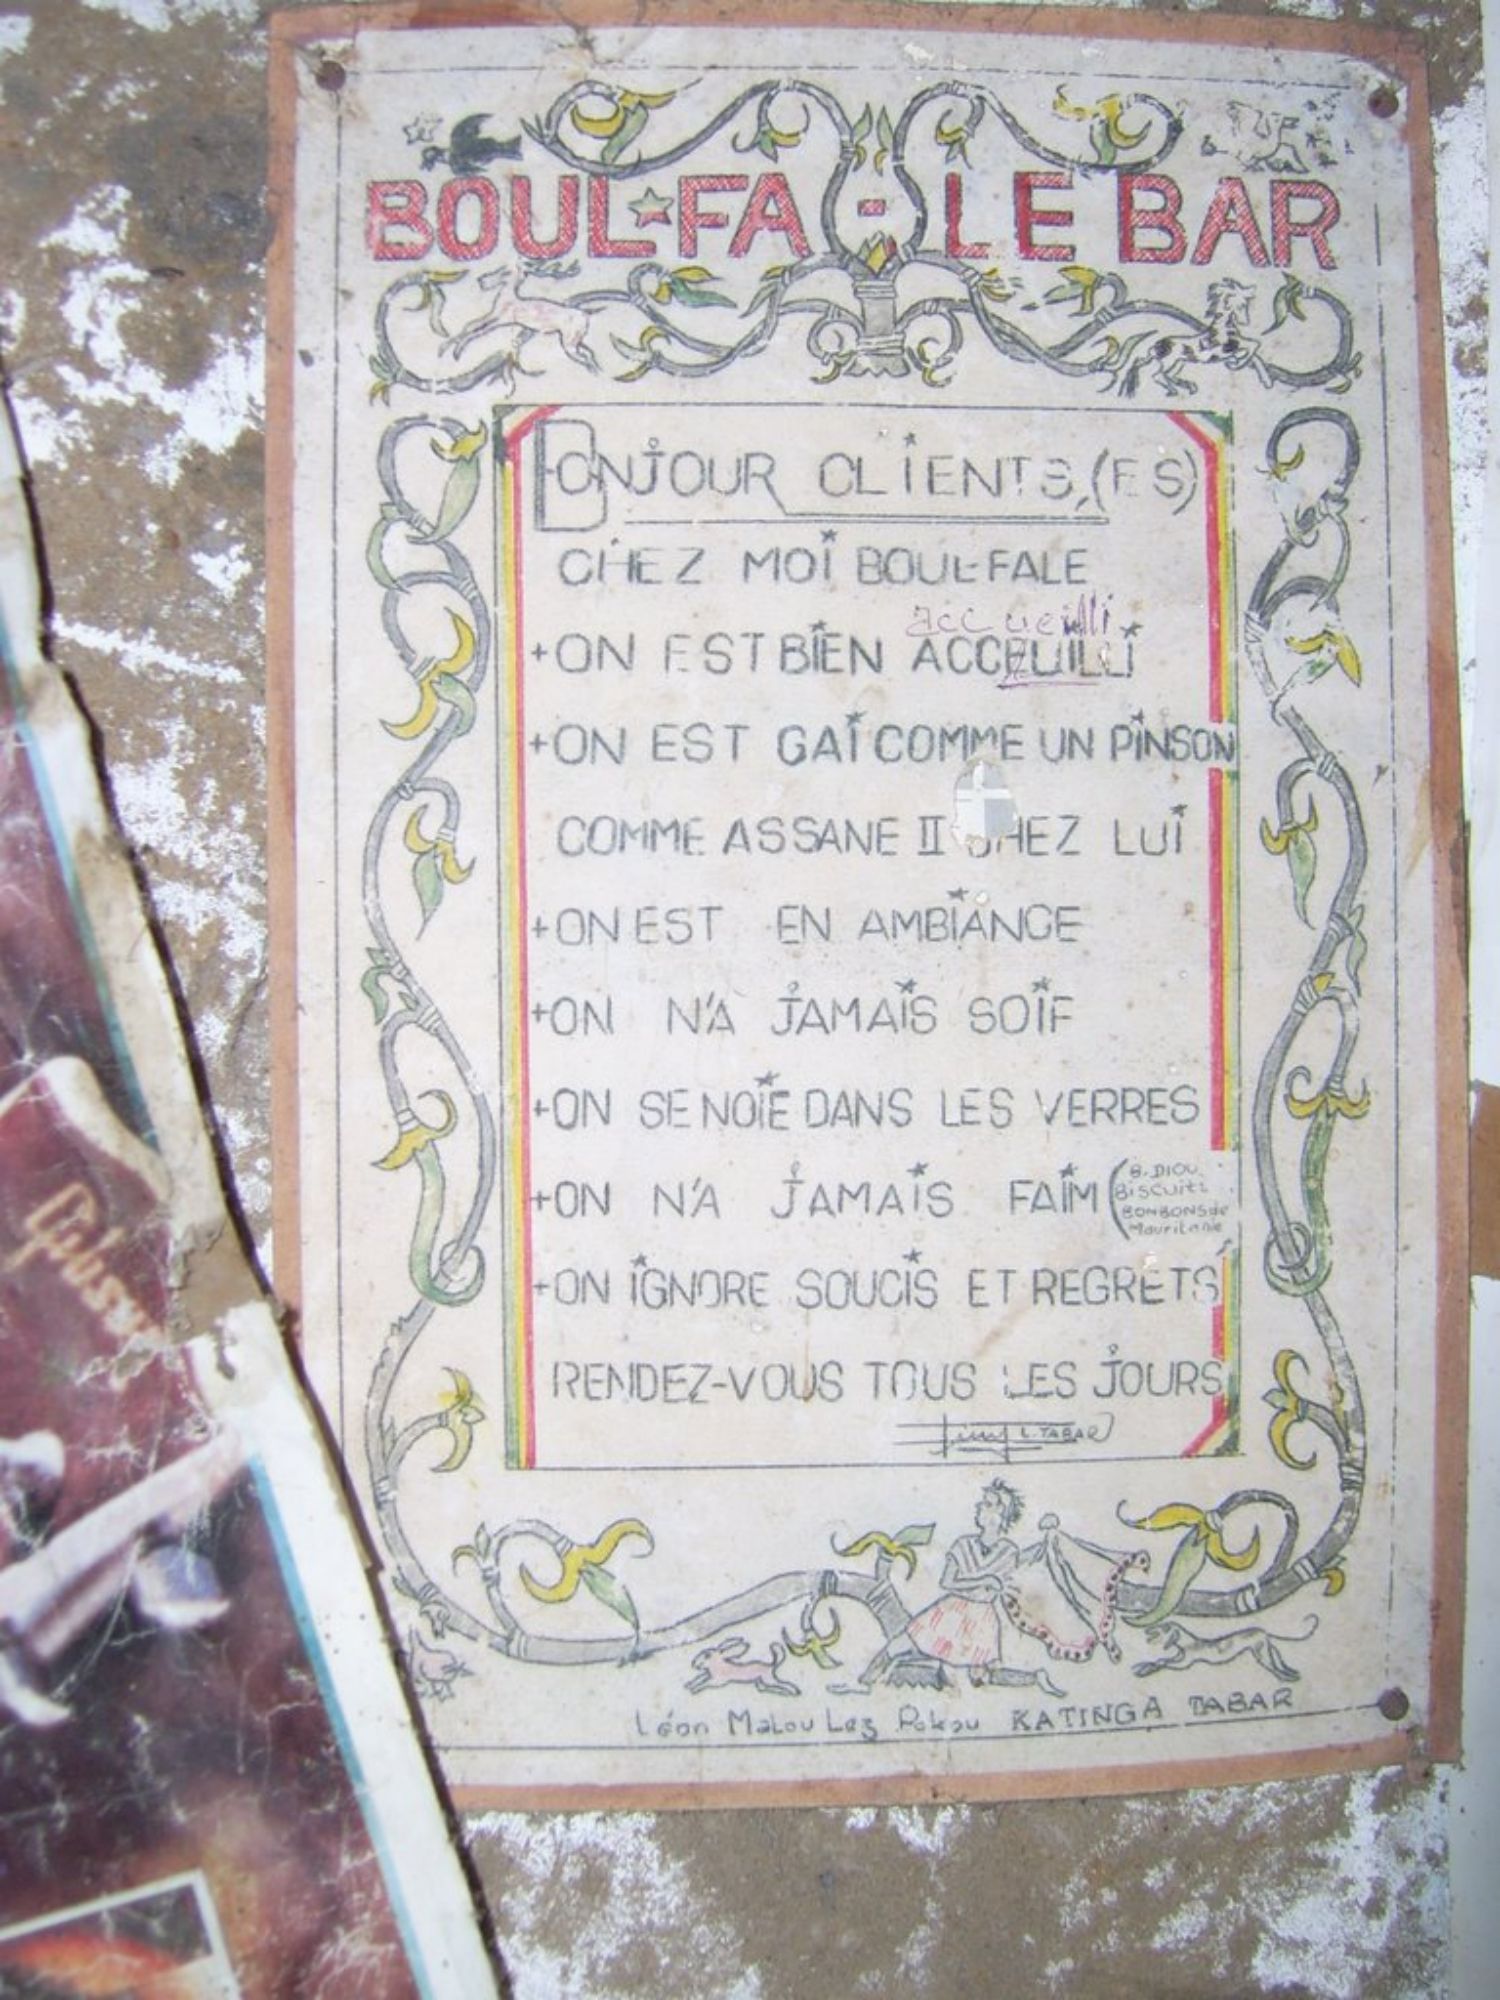 BOUL-FA-LE BAR
BONJOUR CLIENTS,(ES)
CHEZ MOI BOUL-FALE
accueilli
+ON EST BIEN ACCEUILLI
+ON EST GAI COMME UN PINSON
COMME ASSANE II CHEZ LUI
+ON EST EN AMBIANCE
+ON N'A JAMAIS SOIF
+ON SE NOIE DANS LES VERRES
+ON N'A JAMAIS FAIM (B. DIOU
BiSCUITS
BONBONS de
Mauritanie
+ON IGNORE SOUCIS ET REGRETS
RENDEZ-VOUS TOUS LES JOURS
L. TABAR
Léon Malou Lez Pokou KATINGA TABAR
Gibson